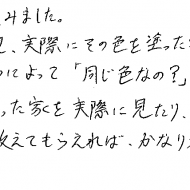 みました。
、実際にその色を塗った
によって「同じ色なの?」
った家を実際に見たり、
教えてもらえれば、かなり